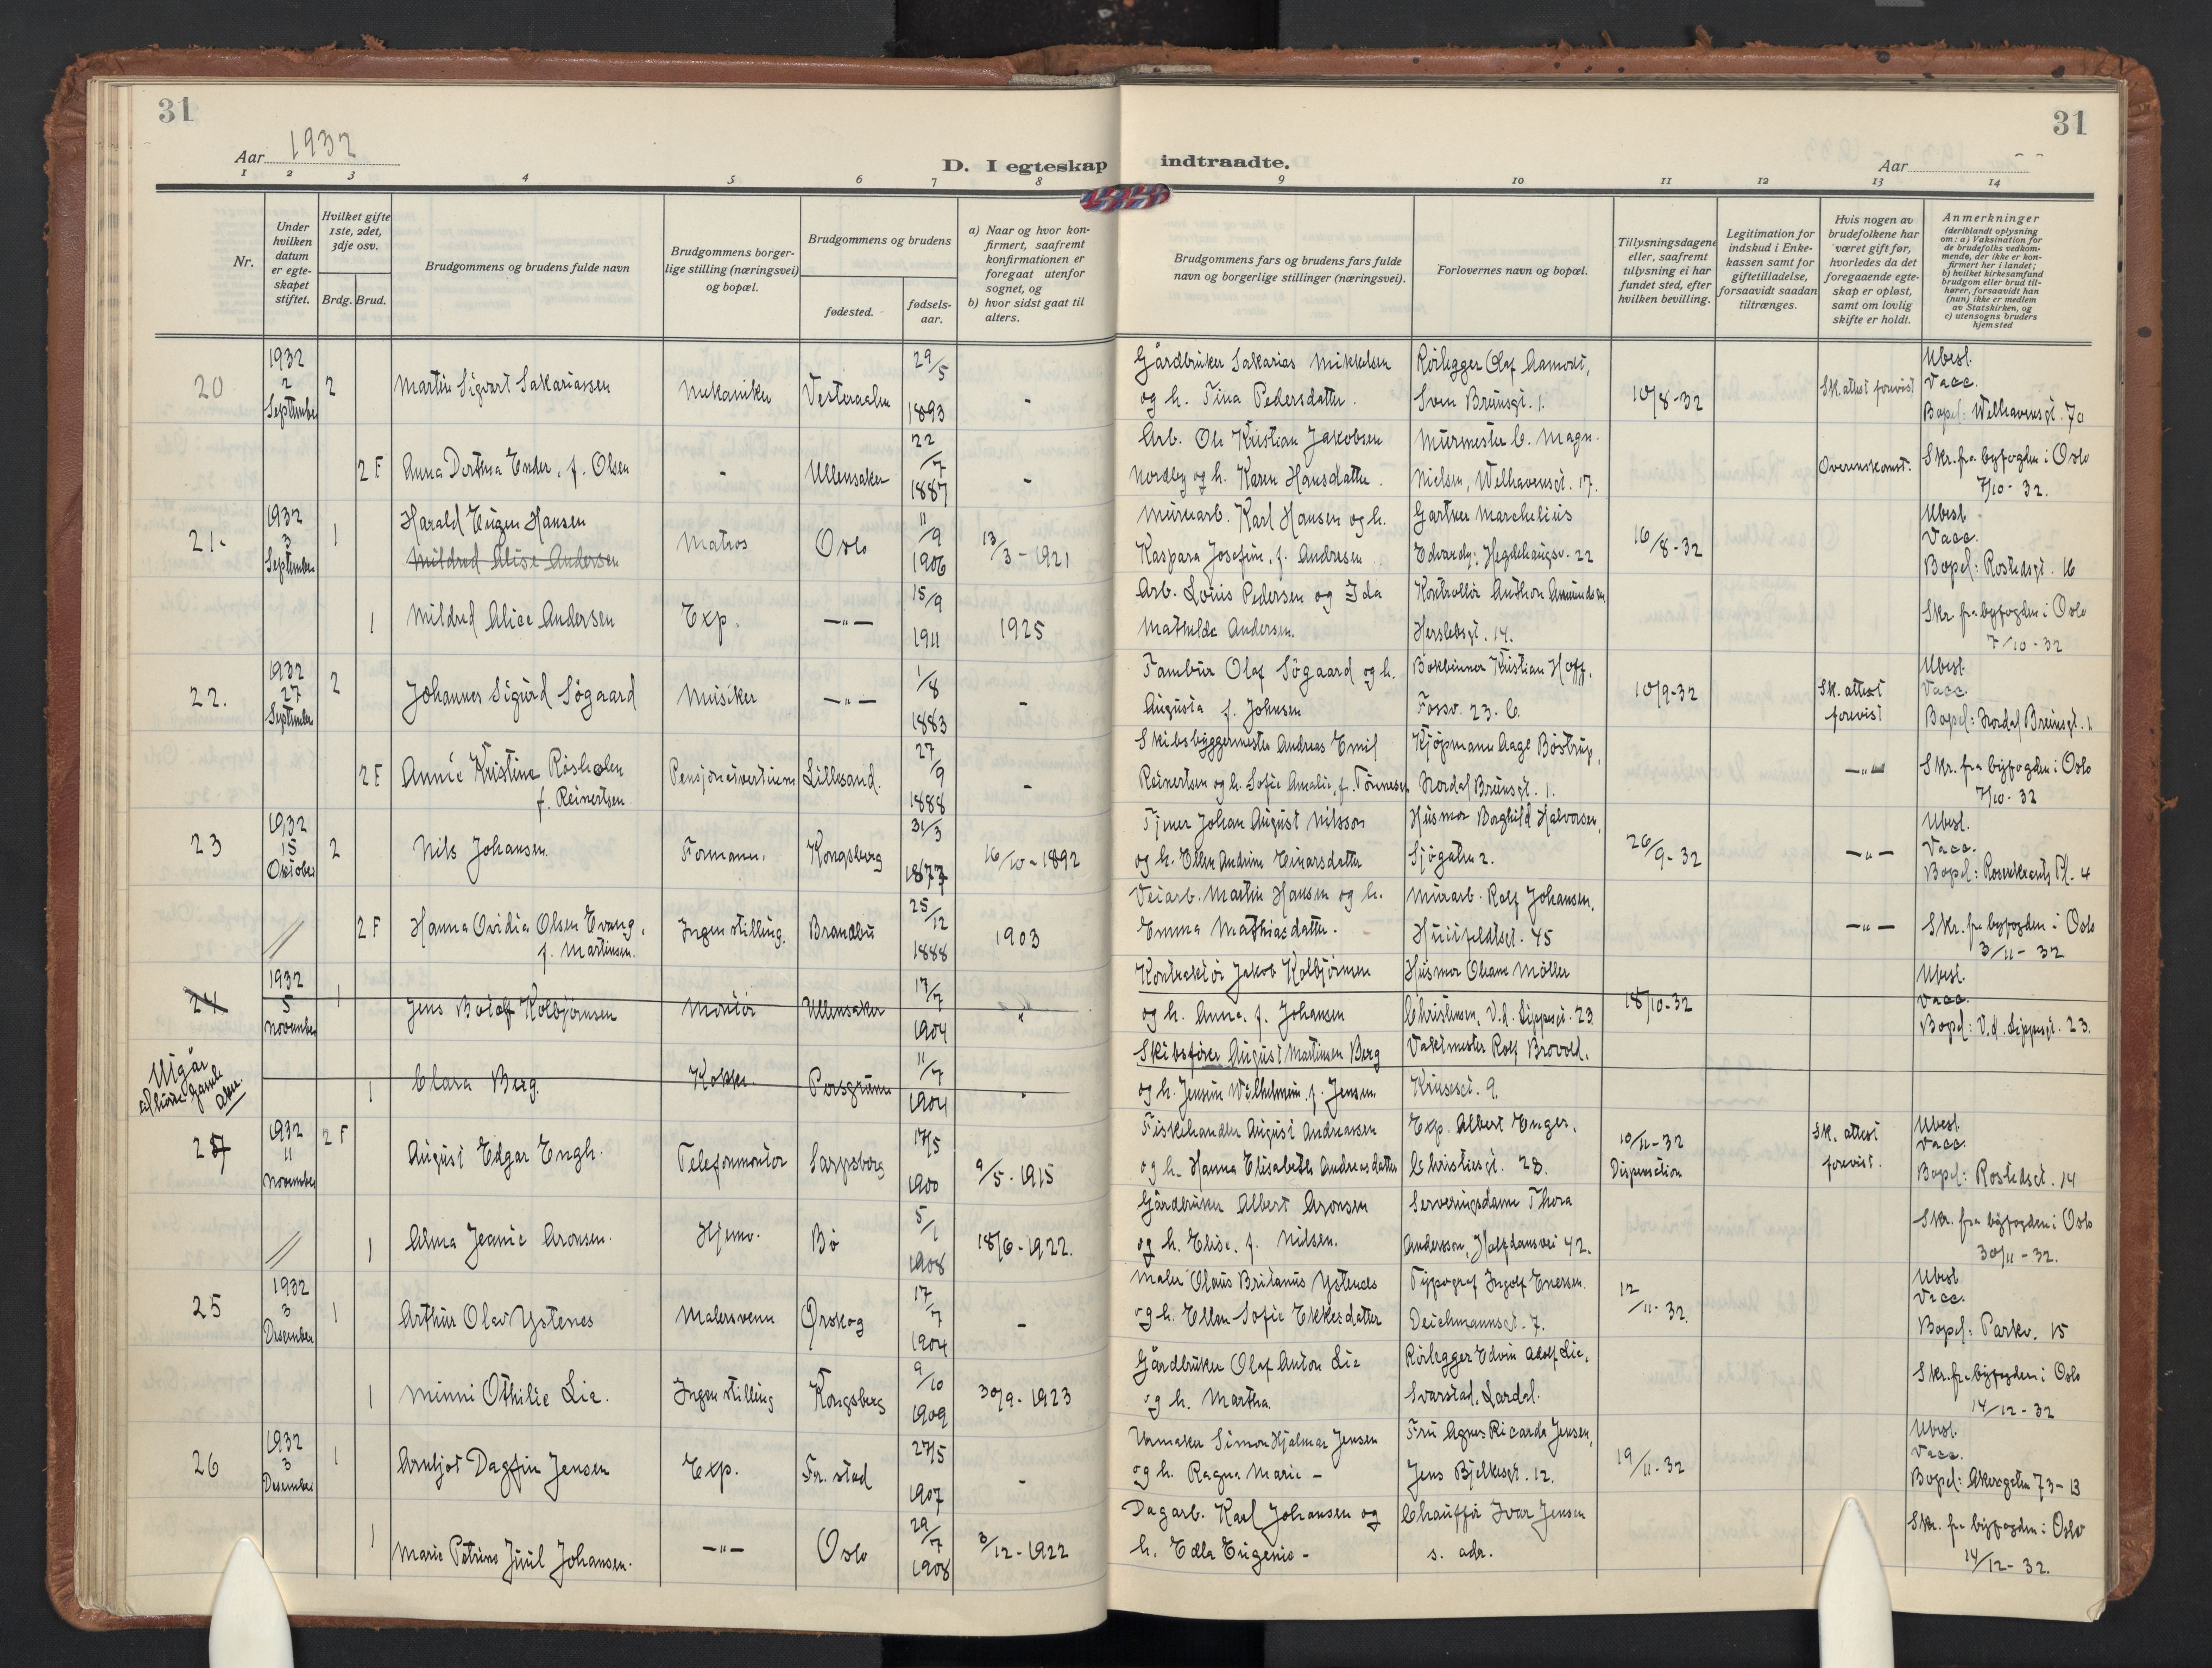 31
31
Aar 1932
D. I egteskap indtraadte.
Aar
1 2 3 4 5 6 7 8 9 10 11 12 13 14
Nr.
Under hvilken datum er egteskapet stiftet.
Hvilket gifte 1ste, 2det, 3dje osv.
Brdg. Brud.
Brudgommens og brudens fulde navn
Brudgommens borgerlige stilling (næringsvei) og bopæl.
Brudgommens og brudens
fødested.
fødselsaar.
a) Naar og hvor konfirmert, saafremt konfirmationen er foregaat utenfor sognet, og
b) hvor sidst gaat til alters.
Brudgommens fars og brudens fars fulde navn og borgerlige stillinger (næringsvei).
Forlovernes navn og bopæl.
Tillysningsdagene eller, saafremt tillysning ei har fundet sted, efter hvilken bevilling.
Legitimation for indskud i Enkekassen samt for giftetilladelse, forsaavidt saadan tiltrænges.
Hvis nogen av brudefolkene har været gift før, hvorledes da det foregaaende egteskap er opløst, samt om lovlig skifte er holdt.
Anmerkninger (deriblandt oplysning om: a) Vaksination for de brudefolks vedkommende, der ikke er konfirmert her i landet; b) hvilket kirkesamfund brudgom eller brud tilhører, forsaavidt han (hun) ikke er medlem av Statskirken, og c) utensogns bruders hjemsted
20 1932 2 September 2 Martin Sigvart Sakariassen Mekaniker Vesteraalen 29/5 1893 - Gårdbruker Sakarias Mikkelsen og h. Tina Pedersdatter. Rørlegger Olaf Aamodt, Sven Bruunsgt. 1. 10/8-32 Sk. attest forevist Ubesl. Vacc. Bopel: Welhavensgt. 70
2 F Anna Dorthea Ender, f. Olsen - Ullensaker 22/7 1887 - Arb. Ole Kristian Jakobsen Nordby og h. Karen Hansdatter. Murmester C. Magn. Nielsen, Welhavensgt. 17. Overenskomst. Skr. fra byfogden i Oslo 7/10-32.
21. 1932 3 September 1 Harald Eugen Hansen Mildred Alise Andersen Matros Oslo 11/9 1906 13/3-1921 Murearb. Karl Hansen og h. Kaspara Josefine, f. Andresen Gartner Marchelius Edvardy: Hegdehaugsv. 22 16/8-32 Ubesl. Vacc. Bopel: Rostedsgt. 16
1 Mildred Alice Andersen Exp. -"- 15/9 1911 1925 Arb. Louis Pedersen og Ida Mathilde Andersen. Kontrollør Anthon Amundsen Herslebsgt. 14. Skr. fra byfogden i Oslo 7/10-32
22. 1932 27 September 2 Johannes Sigurd Søgaard Musiker -"- 1/8 1883 - Tambur Olaf Søgaard og h. Augusta f. Johnsen Bokbinner Kristian Hoff, Fossv. 23. C. 10/9-32 Sk. attest forevist Ubesl. Vacc. Bopel: Nordal Bruunsgt. 1
2 F Annie Kristine Røsholen f. Reinertsen Pensjonatvertinne Lillesand. 27/9 1888 - Skibsbyggermester Andreas Emil Reinertsen og h. Sofie Amalie, f. Tønnesen Kjøpmann Aage Bostrup, Nordal Bruunsgt. 1. -"- Skr. fra byfogden i Oslo 7/10-32
23 1932 15 Oktober 2 Nils Johansen. Formann. Kongsberg 31/3 1877 16/10-1892 Tjener Johan August Nilsson og h. Ellen Andrine Einarsdatter Husmor Borghild Halvorsen, Sjøgaten 2. 26/9-32 -"- Ubesl. Vacc. Bopel: Rosenkrantz Pl. 4
// 2 F Hanna Ovidia Olsen Evang, f. Martinsen. Ingen stilling. Brandbu 25/12 1888 1903 Veiarb. Martin Hansen og h. Emma Mathiasdatter. Murarb. Rolf Johansen, Huitfeldtsgt. 45 -"- Skr. fra byfogden i Oslo 3/11-32
24 1932 5 November 1 Jens Botolf Kolbjørnsen Montør Ullensaker 17/7 1904 Kontraktør Jakob Kolbjørnsen og h. Anna, f. Johansen Husmor Oliane Møller Christensen, V.d. Lippesgt. 23 18/10-32 Ubesl. Vacc. Bopel: V.d. Lippesgt. 23.
Utgår
1 Clara Berg. Kokke. Porsgrunn 11/7 1904 Skibsfører August Martinsen Berg og h. Jensine Wilhelmine, f. Jensen Vaktmester Rolf Brovold, Krusesgt. 9.
24 1932 11 November 2 F August Edgar Engh. Telefonmontør Sarpsborg 17/5 1900 9/5-1915 Fiskehandler August Andreassen og h. Hanna Elisabeth Andreasdatter Exp. Albert Enger, Christiesgt. 28. 10/11-32 Dispensation Sk. attest forevist. Ubesl. Vacc. Bopel: Rostedsgt. 14
// 1 Alma Jeanie Aronsen. Hjemv. Bø 5/1 1908 18/6-1922. Gårdbruker Albert Aronsen og h. Elise, f. Nilsen. Serveringsdame Thora Andersson, Halfdansvei 42. Skr. fra byfogden i Oslo 30/11-32.
25 1932 3 Desember 1 Arthur Olav Ystenes Malersvenn Ørskog 17/7 1904 - Maler Olaus Britanus Ystenes og h. Ellen Sofie Ekkesdatter Typograf Ingolf Enersen. Deichmannsgt. 7. 12/11-32. Ubesl. Vacc. Bopel: Parkv. 15
1 Minni Othilie Lie. Ingen stilling Kongsberg 9/10 1909 30/9-1923 Gårdbruker Olaf Anton Lie og h. Martha. Rørlegger Edvin Adolf Lie, Svarstad, Lardal. Skr. fra byfogden i Oslo 14/12-32
26 1932 3 Desember 1 Arnljot Dagfin Jensen Exp. Fr. stad 27/5 1907 - Urmaker Simon Hjalmar Jensen og h. Ragna Marie - Fru Agnes Ricarda Jensen, Jens Bjelkesgt. 12. 19/11-32 Ubesl. Vacc. Bopel: Akersgaten 73-B
1 Marie Petrine Juul Johansen. -"- Oslo 29/7 1908 3/12-1922 Dagarb. Karl Johansen og h. Edla Eugenie - Chauffør Ivar Jensen s. adr. Skr. fra byfogden i Oslo 14/12-32.